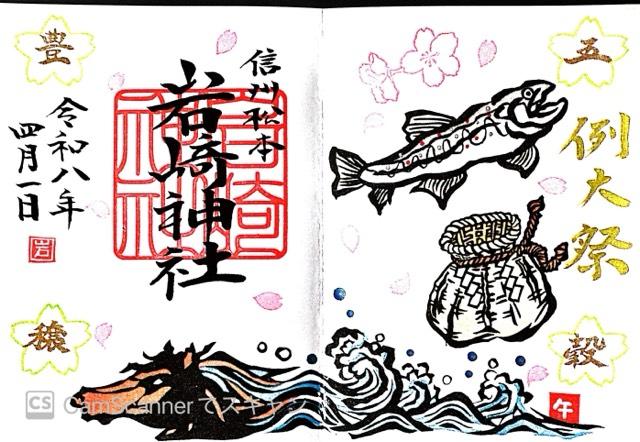 五
穀
例大祭
豊
穣
信州松本
岩崎神社
岩崎神社
令和八年
四月一日
岩
午
CS CamScanner でスキャン